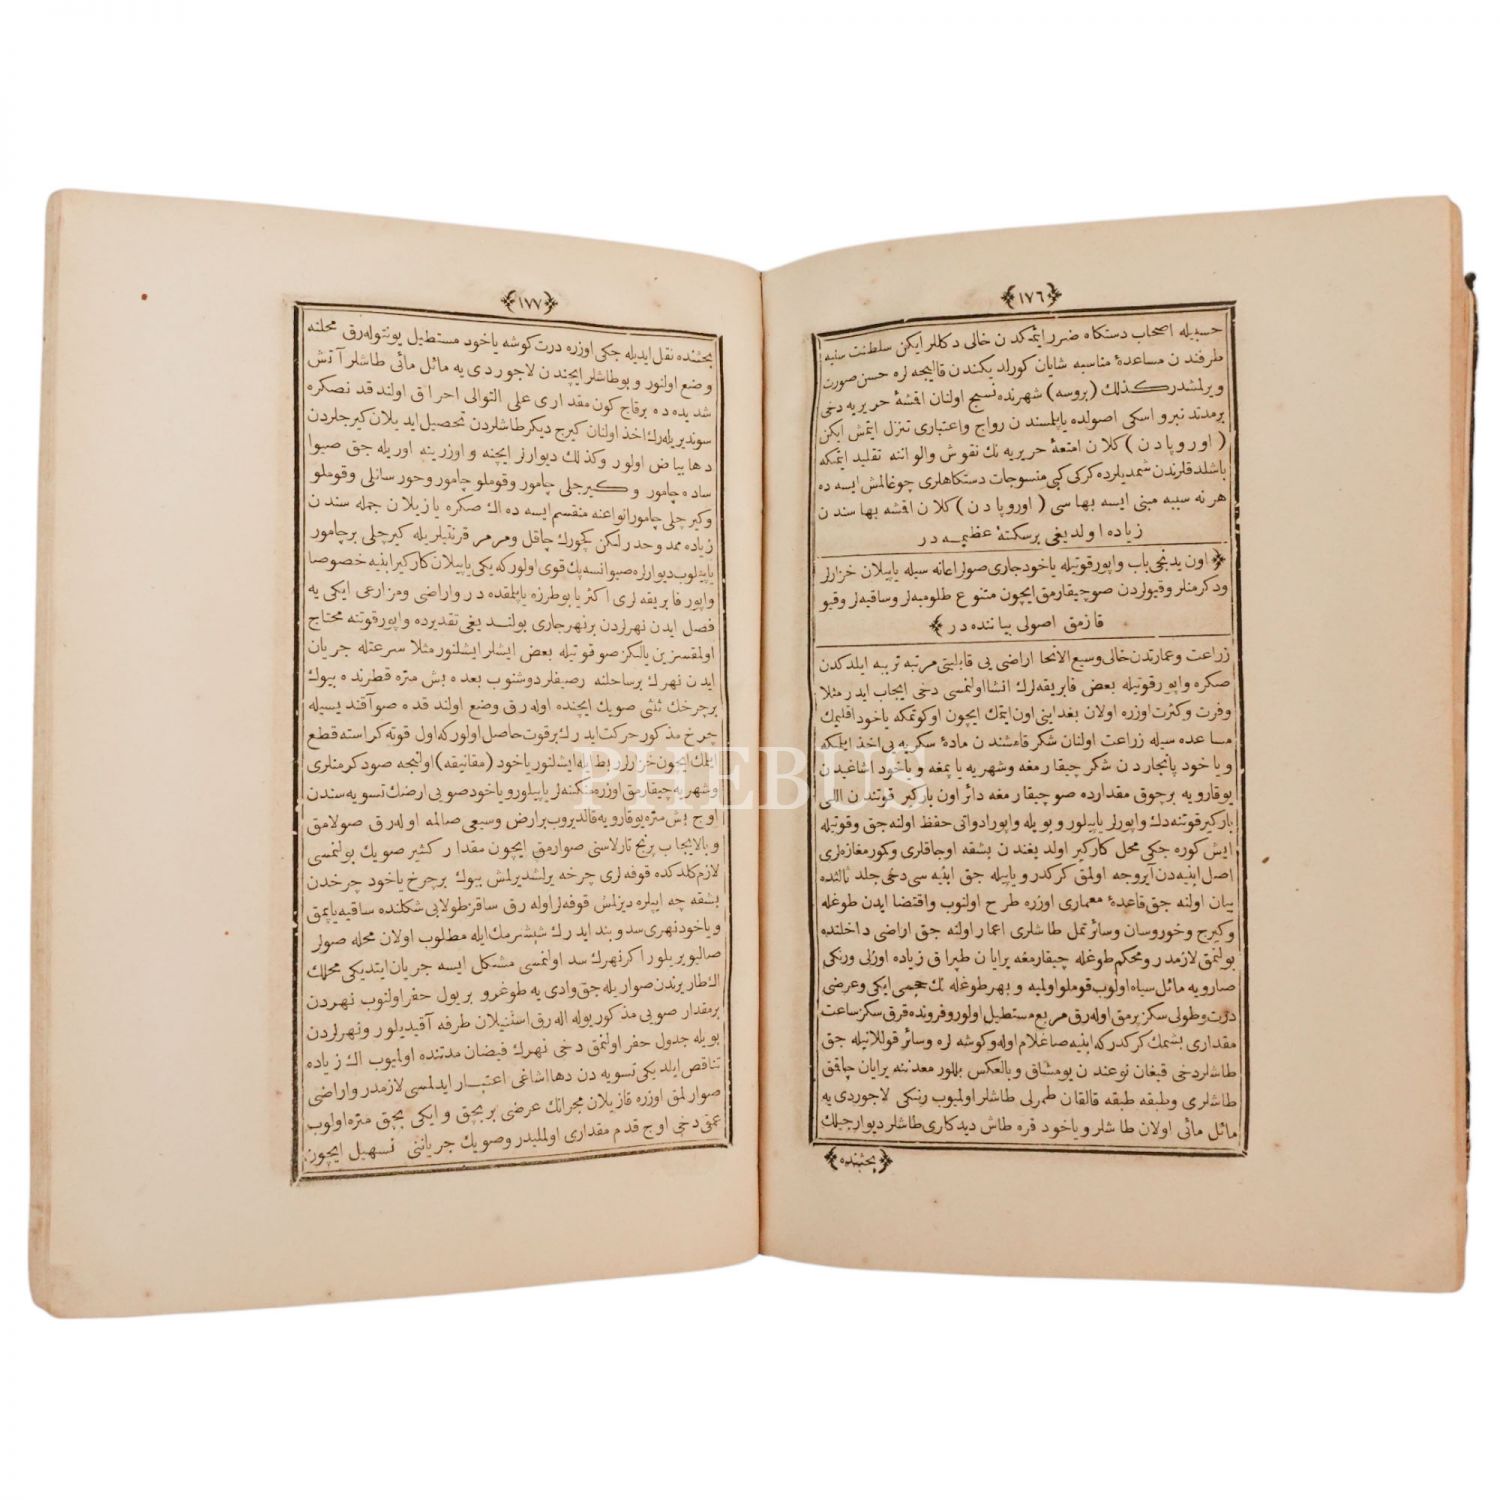 ﴿١٧٦﴾
حسبیله اصحاب دستكاه ضرر ایتمكدن خالی دكللر ایكن سلطنت سنیه
طرفندن مساعدهٔ مناسبه شایان كورلدیكندن قالیجه لره حسن صورت
ویرلمشدر كذلك (بروسه) شهرنده نسیج اولنان اقشهٔ حریریه دخی
برمدتدنبرو اسكی اصولده یاپلمسندن رواج واعتباری تنزل ایتمش ایكن
(اوروپادن) كلان امتعهٔ حریریه نك نقوش والواننه تقلید ایتمكه
باشلدقلرندن شمدیلرده كركی كبی منسوجات دستكاهلری چوغالمش ایسه ده
هرنه سببه مبنی ایسه بهاسی (اوروپادن) كلان اقشه بهاسندن
زیاده اولدیغی برسكتهٔ عظیمه در
﴿اون یدنجی باب واپور قوتیله یاخود جاری صولر اعانه سیله یاپیلان خزارلر
ودكرمنلر وقیولردن صو چیقارمق ایچون متنوع طلومبه لر وساقیه لر وقیو
قازمق اصولی بیاننده در﴾
زراعت وعمارتدن خالی وسیع الانحا اراضی یی قابلیتی مرتبه تربیه ایلدكدن
صكره واپور قوتیله بعض فابریقه لرك انشا اولنمسی دخی ایجاب ایدر مثلا
وفرت وكثرت اوزره اولان بغدایی اون ایتمك ایچون اوكوتمكه یاخود اقلیمك
مساعده سیله زراعت اولنان شكر قامشندن مادهٔ سكریه یی اخذ ایلمكه
ویاخود پانجاردن شكر چیقارمغه وشهریه یاپمغه ویاخود اشاغیدن
یوقارویه برچوق مقدارده صو چیقارمغه دائر اون باركیر قوتندن اللی
باركیر قوتنه دك واپورلر یاپیلور وبویله واپور ادواتی حفظ اولنه جق وقوتیله
ایش كوره جكی محل كاركیر اولدیغندن بشقه اوجاقلری وكور مغازه لری
اصل ابنیه دن آیروجه اولمق كركدر ویاپیله جق ابنیه سی دخی جلد ثالثده
بیان اولنه جق قاعدهٔ معماری اوزره طرح اولنوب واقتضا ایدن طوغله
وكیرج وخوروسان وسائر تمل طاشلری اعمار اولنه جق اراضی داخلنده
بولنمق لازمدر ومحكم طوغله چیقارمغه یرایان طپراق زیاده اوزلی ورنكی
صارویه مائل سیاه اولوب قوملو اولمیه وبهر طوغله نك حجمی ایكی وعرضی
درت وطولی سكز برمق اوله رق مربع مستطیل اولور وفرونده قرق سكز ساعت
مقداری پشمك كركدر كه ابنیه صاغلام اوله وكوشه لره وسائر قوللانیله جق
طاشلر دخی قیغان نوعندن یومشاق وبالعكس بللور معدننه یرایان چاقق
طاشلری وطبقه طبقه قالقان طمرلی طاشلر اولمیوب رنكی لاجوردی یه
مائل مائی اولان طاشلر ویاخود قره طاش دیدكلری طاشلر دیوارجیلك
﴿بحثنده﴾
﴿١٧٧﴾
بحثنده نقل ایدیله جكی اوزره درت كوشه یاخود مستطیل یونتوله رق محلنه
وضع اولنور وبو طاشلر ایچندن لاجوردی یه مائل مائی طاشلر آتش
شدیده ده برقاچ كون مقداری علی التوالی احراق اولندقدنصكره
سوندیریله رك اخذ اولنان كیرج دیكر طاشلردن تحصیل ایدیلان كیرجلردن
دها بیاض اولور وكذلك دیوارلر ایچنه واوزرینه اوریله جق صیوا
ساده چامور وكیرجلی چامور وقوملو چامور وحورسانلی وقوملو
وكیرجلی چامور انواعنه منقسم ایسه ده اك صكره یازیلان جمله سندن
زیاده ممدوحدر لكن كچورك چاقل ومرمر قرنتیلریله كیرجلی برچامور
یاپیلوب دیوارلره صیوانسه پك قوی اولور كه یكی یاپیلان كاركیر ابنیه خصوصا
واپور فابریقه لری اكثریا بو طرزه یاپلمقده در واراضی ومزارعی ایكی یه
فصل ایدن نهرلردن برنهر جاری بولندیغی تقدیرده واپور قوتنه محتاج
اولمقسزین یالكز صو قوتیله بعض ایشلر ایشلنور مثلا سرعتله جریان
ایدن نهرك برساحلنه رصیفلر دوشنوب بعده بش متره قطرنده بیوك
برچرخك ثلثی صویك ایچنده اوله رق وضع اولندقده صو آقندیسیله
چرخ مذكور حركت ایدرك برقوت حاصل اولور كه اول قوته كراسته قطع
ایتمك ایچون خزارلر ربط ایله ایشلنور یاخود (مقانیقه) اولنجه صو دكرمنلری
وشهریه چیقارمق اوزره مكنه لر یاپیلور ویاخود صویی ارضك تسویه سندن
اوچ بش متره یوقارویه قالدیروب برارض وسیعی صالمه اوله رق صولامق
وبالایجاب پرنج تارلاسنی صوارمق ایچون مقدار كثیر صویك بولنمسی
لازم كلدكده قوفه لری چرخه یرلشدیرلمش بیوك برچرخ یاخود چرخدن
بشقه چه ایپلره دیزلمش قوفه لر اوله رق ساقز طولابی شكلنده ساقیه یاپمق
ویاخود نهری سد وبند ایدرك شیشرمك ایله مطلوب اولان محله صولر
صالیویریلور اكر نهرك سد اولنمسی مشكل ایسه جریان ایتدیكی محلك
اك طار یرندن صواریله جق وادی یه طوغرو بریول حفر اولنوب نهردن
برمقدار صویی مذكور یوله اله رق استنیلان طرفه آقیدیلور ونهرلردن
بویله جدول حفر اولنمق دخی نهرك فیضان مدتنده اولمیوب اك زیاده
تناقص ایلدیكی تسویه دن دها اشاغی اعتبار ایدلمسی لازمدر واراضی
صوارلمق اوزره قازیلان مجرانك عرضی بربچق وایكی بچق متره اولوب
عمق دخی اوچ قدم مقداری اولملیدر وصویك جریاننی تسهیل ایچون